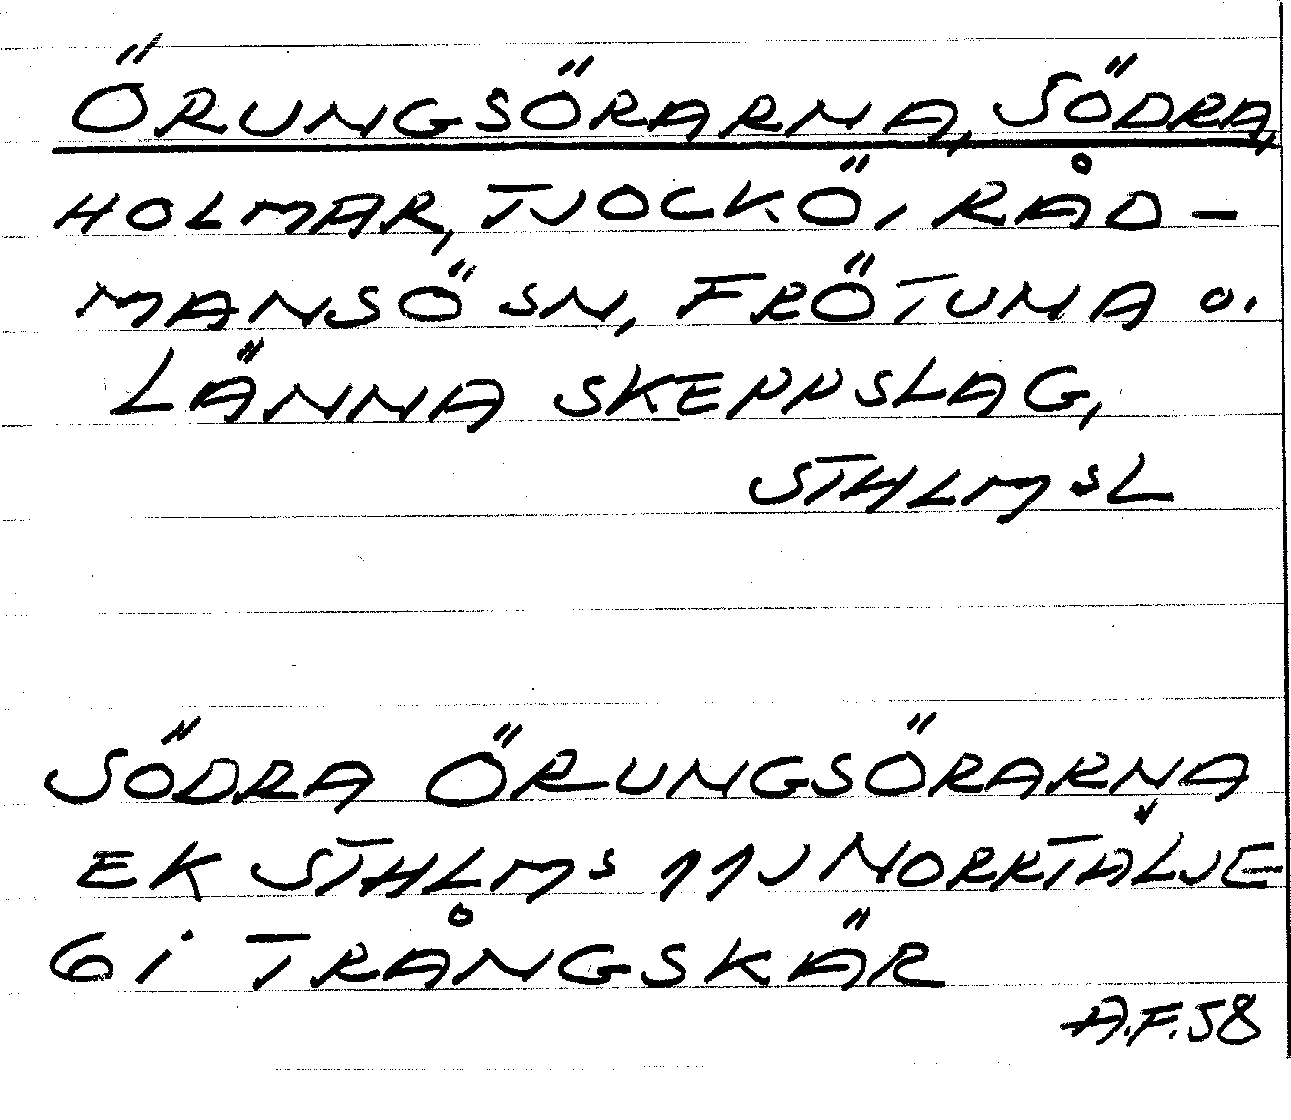 ÖRUNGSÖRARNA, SÖDRA,
HOLMAR, TJOCKÖ, RÅD-
MANSÖ SN, FRÖTUNA O.
LÄNNA SKEPPSLAG,
STHLMSL
SÖDRA ÖRUNGSÖRARNA
EK STHLMS 11J NORRTÄLJE
6i TRÅNGSKÄR
A.F.58